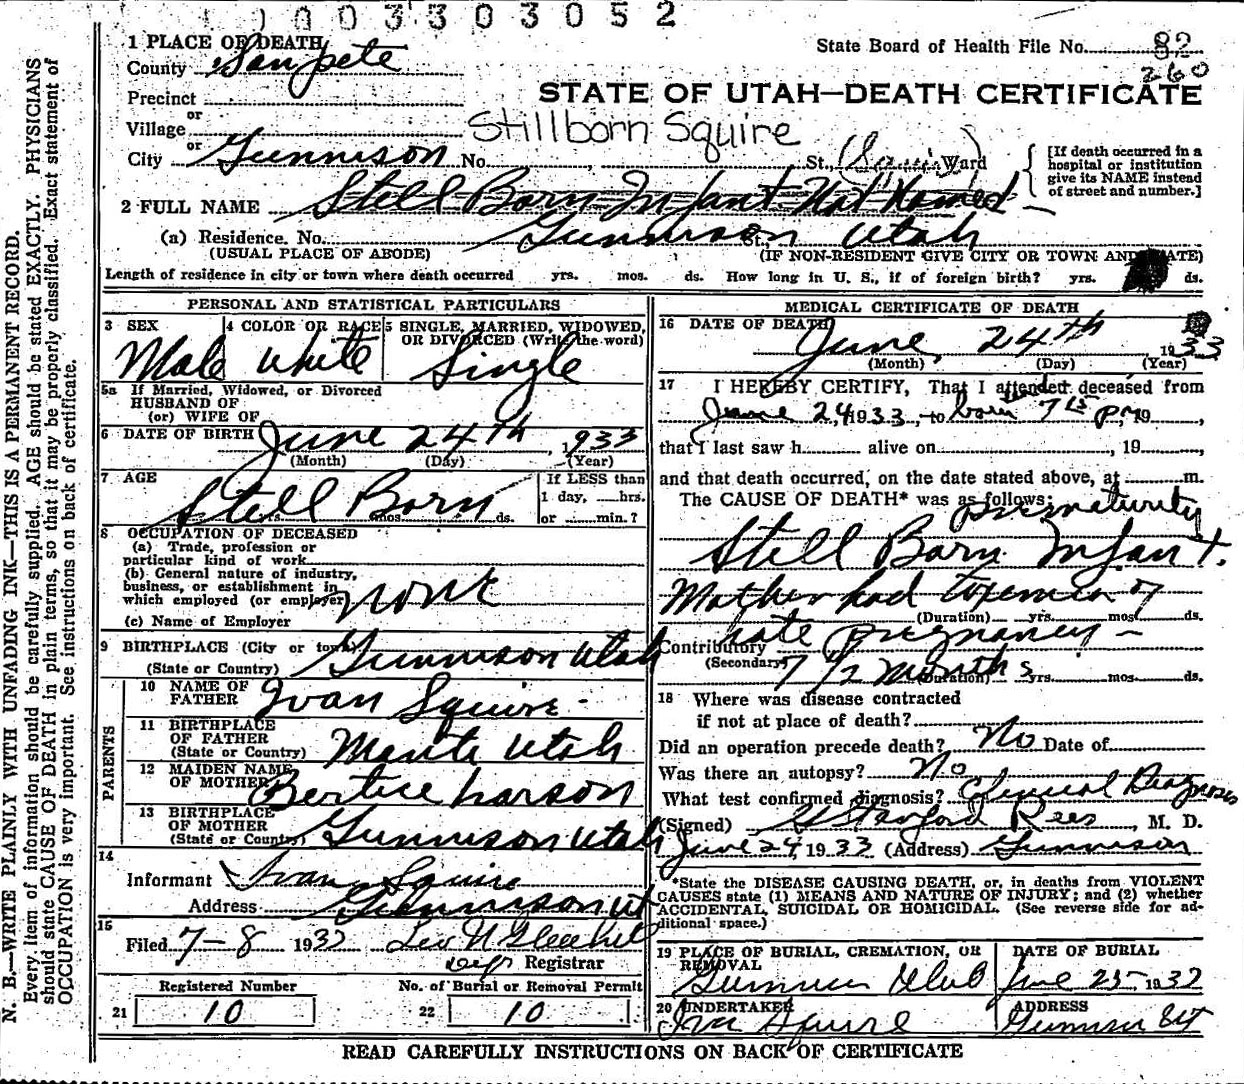 0 0 3 3 0 3 0 5 2
1 PLACE OF DEATH
County Sanpete
State Board of Health File No. 82
260
Precinct
or
Village
STATE OF UTAH—DEATH CERTIFICATE
Stillborn Squire
or
City Gunnison No. St., (Squire) Ward
[If death occurred in a hospital or institution give its NAME instead of street and number.]
2 FULL NAME Still Born Infant Not Named
(a) Residence. No. Gunnison St., Utah
(USUAL PLACE OF ABODE) (IF NON-RESIDENT GIVE CITY OR TOWN AND STATE)
Length of residence in city or town where death occurred yrs. mos. ds. How long in U. S., if of foreign birth? yrs. ds.
PERSONAL AND STATISTICAL PARTICULARS
3 SEX Male
4 COLOR OR RACE White
5 SINGLE, MARRIED, WIDOWED, OR DIVORCED (Write the word) Single
5a If Married, Widowed, or Divorced
HUSBAND OF
(or) WIFE OF
6 DATE OF BIRTH June 24th, 1933
(Month) (Day) (Year)
7 AGE Still Born
yrs. mos. ds.
If LESS than
1 day, hrs.
or min.?
8 OCCUPATION OF DECEASED
(a) Trade, profession or
particular kind of work
(b) General nature of industry,
business, or establishment in
which employed (or employer) none
(c) Name of Employer
9 BIRTHPLACE (City or town) Gunnison Utah
(State or Country)
PARENTS
10 NAME OF FATHER Ivan Squire
11 BIRTHPLACE OF FATHER (State or Country) Manti Utah
12 MAIDEN NAME OF MOTHER Bertice Larson
13 BIRTHPLACE OF MOTHER (State or Country) Gunnison Utah
14
Informant Ivan Squire
Address Gunnison Ut
15
Filed 7-8 1933
Dep Registrar
Registered Number No. of Burial or Removal Permit
21 10 22 10
MEDICAL CERTIFICATE OF DEATH
16 DATE OF DEATH June 24th 1933
(Month) (Day) (Year)
17 I HEREBY CERTIFY, That I attended deceased from
June 24, 1933, to born 7 15 PM 19
that I last saw h alive on , 19 ,
and that death occurred, on the date stated above, at m.
The CAUSE OF DEATH* was as follows:
prematurity
Still Born Infant.
Mother had toxemia of
(Duration) yrs. mos. ds.
late pregnancy —
Contributory
(Secondary) 7 1/2 Months
(Duration) yrs. mos. ds.
18 Where was disease contracted
if not at place of death?
Did an operation precede death? No Date of
Was there an autopsy? No
What test confirmed diagnosis? Clinical Diagnosis
(Signed) G Stanford Rees, M. D.
June 24, 1933 (Address) Gunnison
*State the DISEASE CAUSING DEATH, or, in deaths from VIOLENT
CAUSES state (1) MEANS AND NATURE OF INJURY; and (2) whether
ACCIDENTAL, SUICIDAL OR HOMICIDAL. (See reverse side for ad-
ditional space.)
19 PLACE OF BURIAL, CREMATION, OR REMOVAL DATE OF BURIAL
Gunnison Utah June 25 1933
20 UNDERTAKER ADDRESS
Ivan Squire Gunnison Ut
READ CAREFULLY INSTRUCTIONS ON BACK OF CERTIFICATE
N. B.—WRITE PLAINLY WITH UNFADING INK—THIS IS A PERMANENT RECORD.
Every item of information should be carefully supplied. AGE should be stated EXACTLY. PHYSICIANS
should state CAUSE OF DEATH in plain terms, so that it may be properly classified. Exact statement of
OCCUPATION is very important. See instructions on back of certificate.